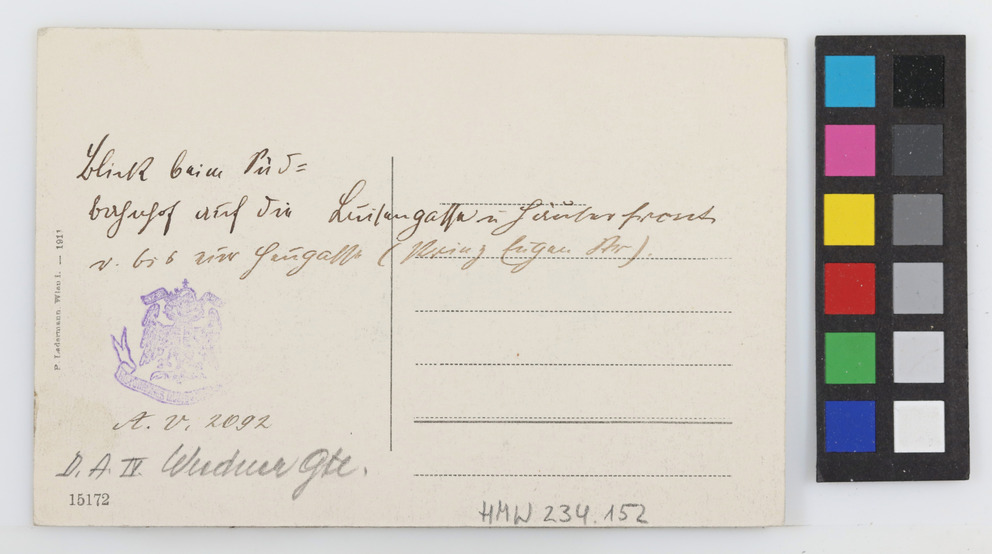 Blick beim Süd=
bahnhof auf die Luisengasse u Häuserfront
v. bis zur Heugasse (Prinz Eugen Str).
P. Ledermann, Wien I. — 1911
A. V. 2092
D. A. IV. Wiedner Gte.
15172
HMW 234.152